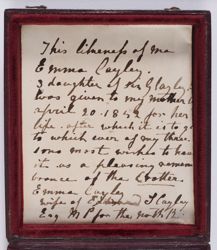 This likeness of me
Emma Cayley.
3 daughter of Sir G Cayley
was given to my mother
april 20. 1842 for her
life. after which it is to go
to which ever of my three
sons most wishes to have
it. as a pleasing remem
brance of the
Emma Cayley
wife of Cayley
Esq M P for the north R.